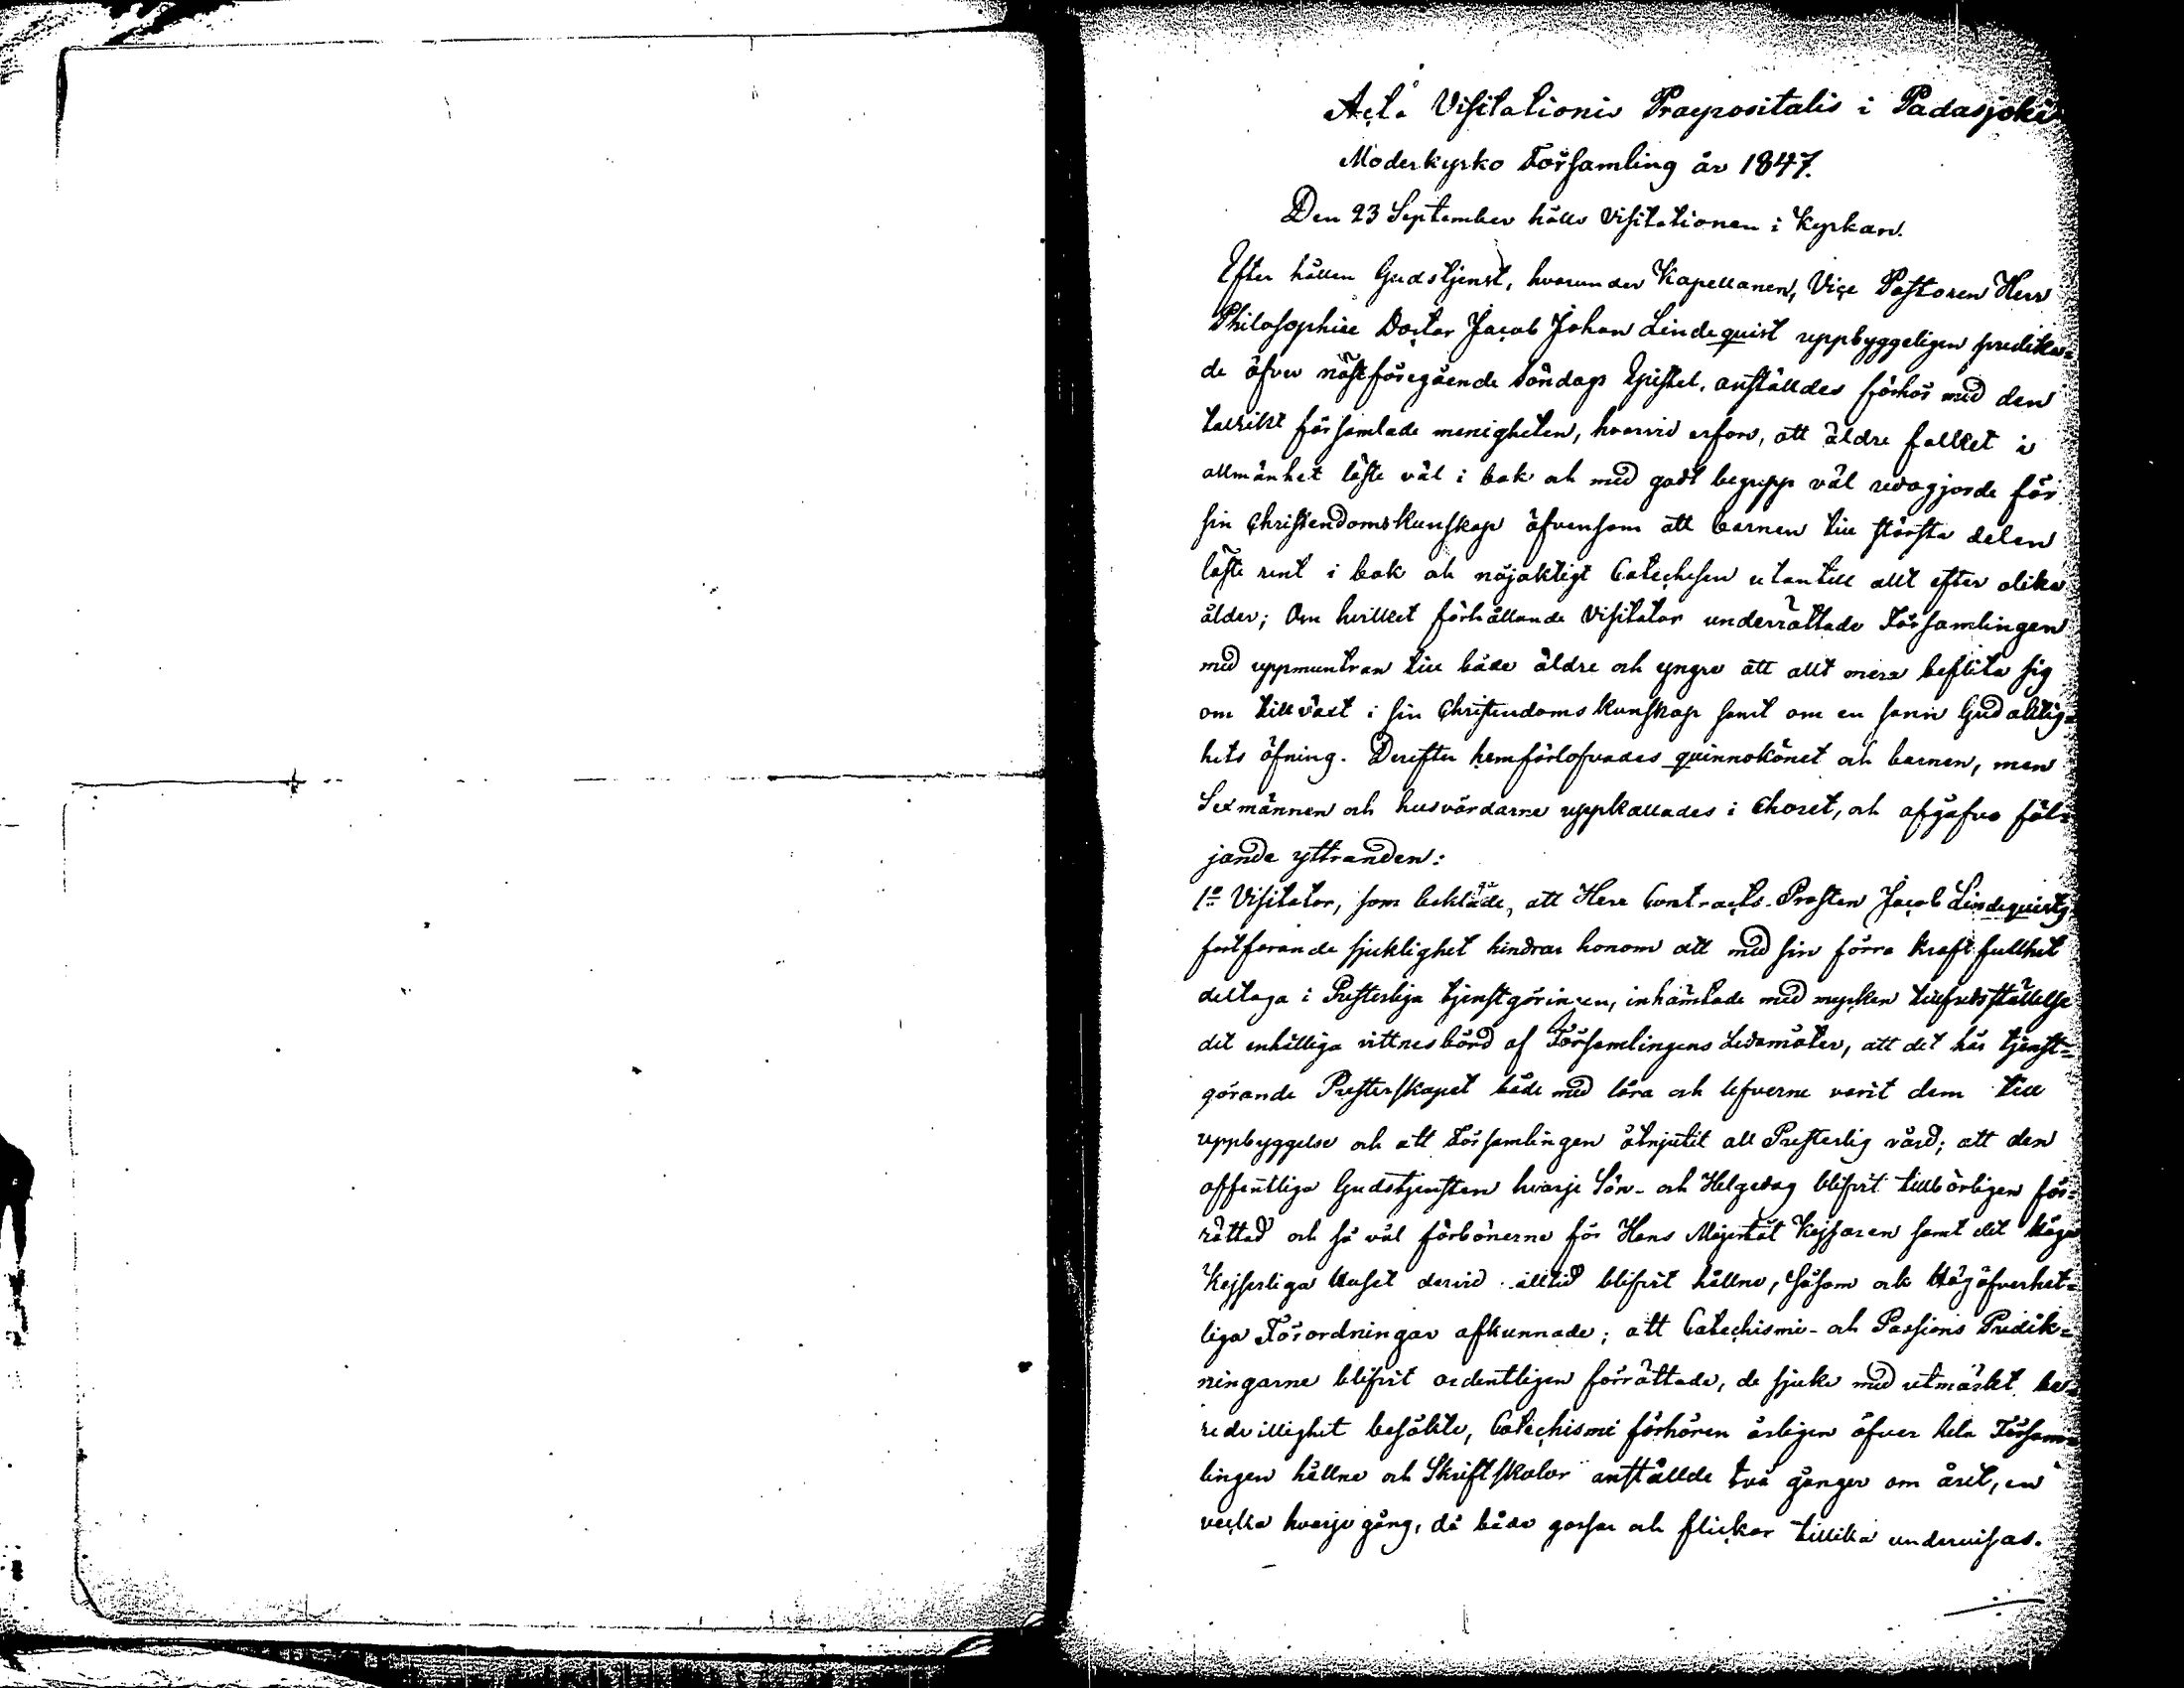 Acta Visitationis Praepositalis i Padasjoki
Moderkyrko Församling år 1847.
Den 23 September hölls Visitationen i Kyrkan.
Efter hållen Gudstjenst, hvarunder Kapellanen, Vice Pastoren Herr
Philosophiæ Doctor Jacob Johan Lindequist uppbyggeligen predika=
de öfver nästföregående Söndags Epistel, anställdes förhör med den
talrikt församlade menigheten, hvarvid erfors, att äldre folket i
allmänhet läste väl i bok och med godt begrepp väl redogjorde för
sin Christendomskunskap äfvensom att barnen till största delen
läste rent i bok och nöjaktigt Catechesen utantill allt efter olika
ålder; Om hvilket förhållande Visitator underrättade Församlingen
med uppmuntran till både äldre och yngre att allt mera beflita sig
om tillväxt i sin Christendoms kunskap samt om en sann Gudaktig=
hets öfning. Derefter hemförlofvades qvinnokönet och barnen, men
Sexmännen och husvärdarne uppkallades i Choret, och afgåfvo föl=
jande yttranden:
1o Visitator, som beklagade, att Herr Contracts-Prosten Jacob Lindequists
fortfarande sjuklighet hindrar honom att med sin förra kraftfullhet
deltaga i Presterliga tjenstgöringen, inhämtade med mycken tillfredsställelse
det enhälliga vittnesbörd af Församlingens Ledamöter, att det här tjenst=
görande Presterskapet både med lära och lefverne varit dem till
uppbyggelse och att Församlingen åtnjutit all Presterlig vård; att den
offentliga Gudstjensten hvarje Sön- och Helgedag blifvit tillbörligen för=
rättad och så väl förbönerne för Hans Majestät Kejsaren samt det Höga
Kejserliga Huset dervid alltid blifvit hållne, såsom ock Högöfverhet=
liga Förordningar afkunnade; att Catechismi- och Passions Predik=
ningarne blifvit ordentligen förrättade, de sjuke med utmärkt be=
redvillighet besökte, Catechismi förhören årligen öfver hela Försam=
lingen hållne och Skriftskolor anställde två gånger om året, en
vecka hvarje gång, då både gossar och flickor tillika undervisas.